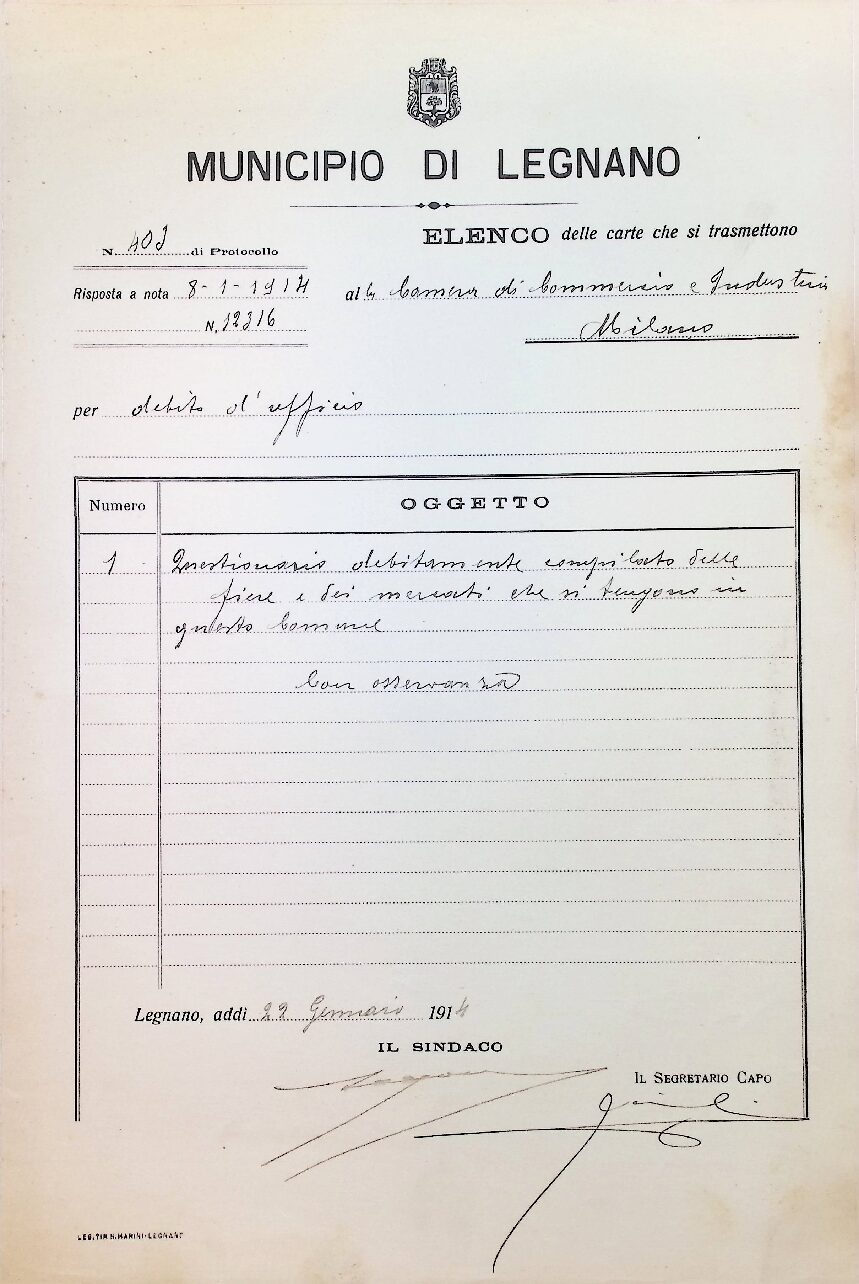 MUNICIPIO DI LEGNANO
N. 403 di Protocollo
ELENCO delle carte che si trasmettono
Risposta a nota 8-1-1914
N. 12316
alla Camera di Commercio e Industria
Milano
per debito d'ufficio
Numero OGGETTO
1 Questionario debitamente compilato delle
fiere e dei mercati che si tengono in
questo Comune
Con osservanza
Legnano, addì 22 Gennaio 1914
IL SINDACO
IL SEGRETARIO CAPO